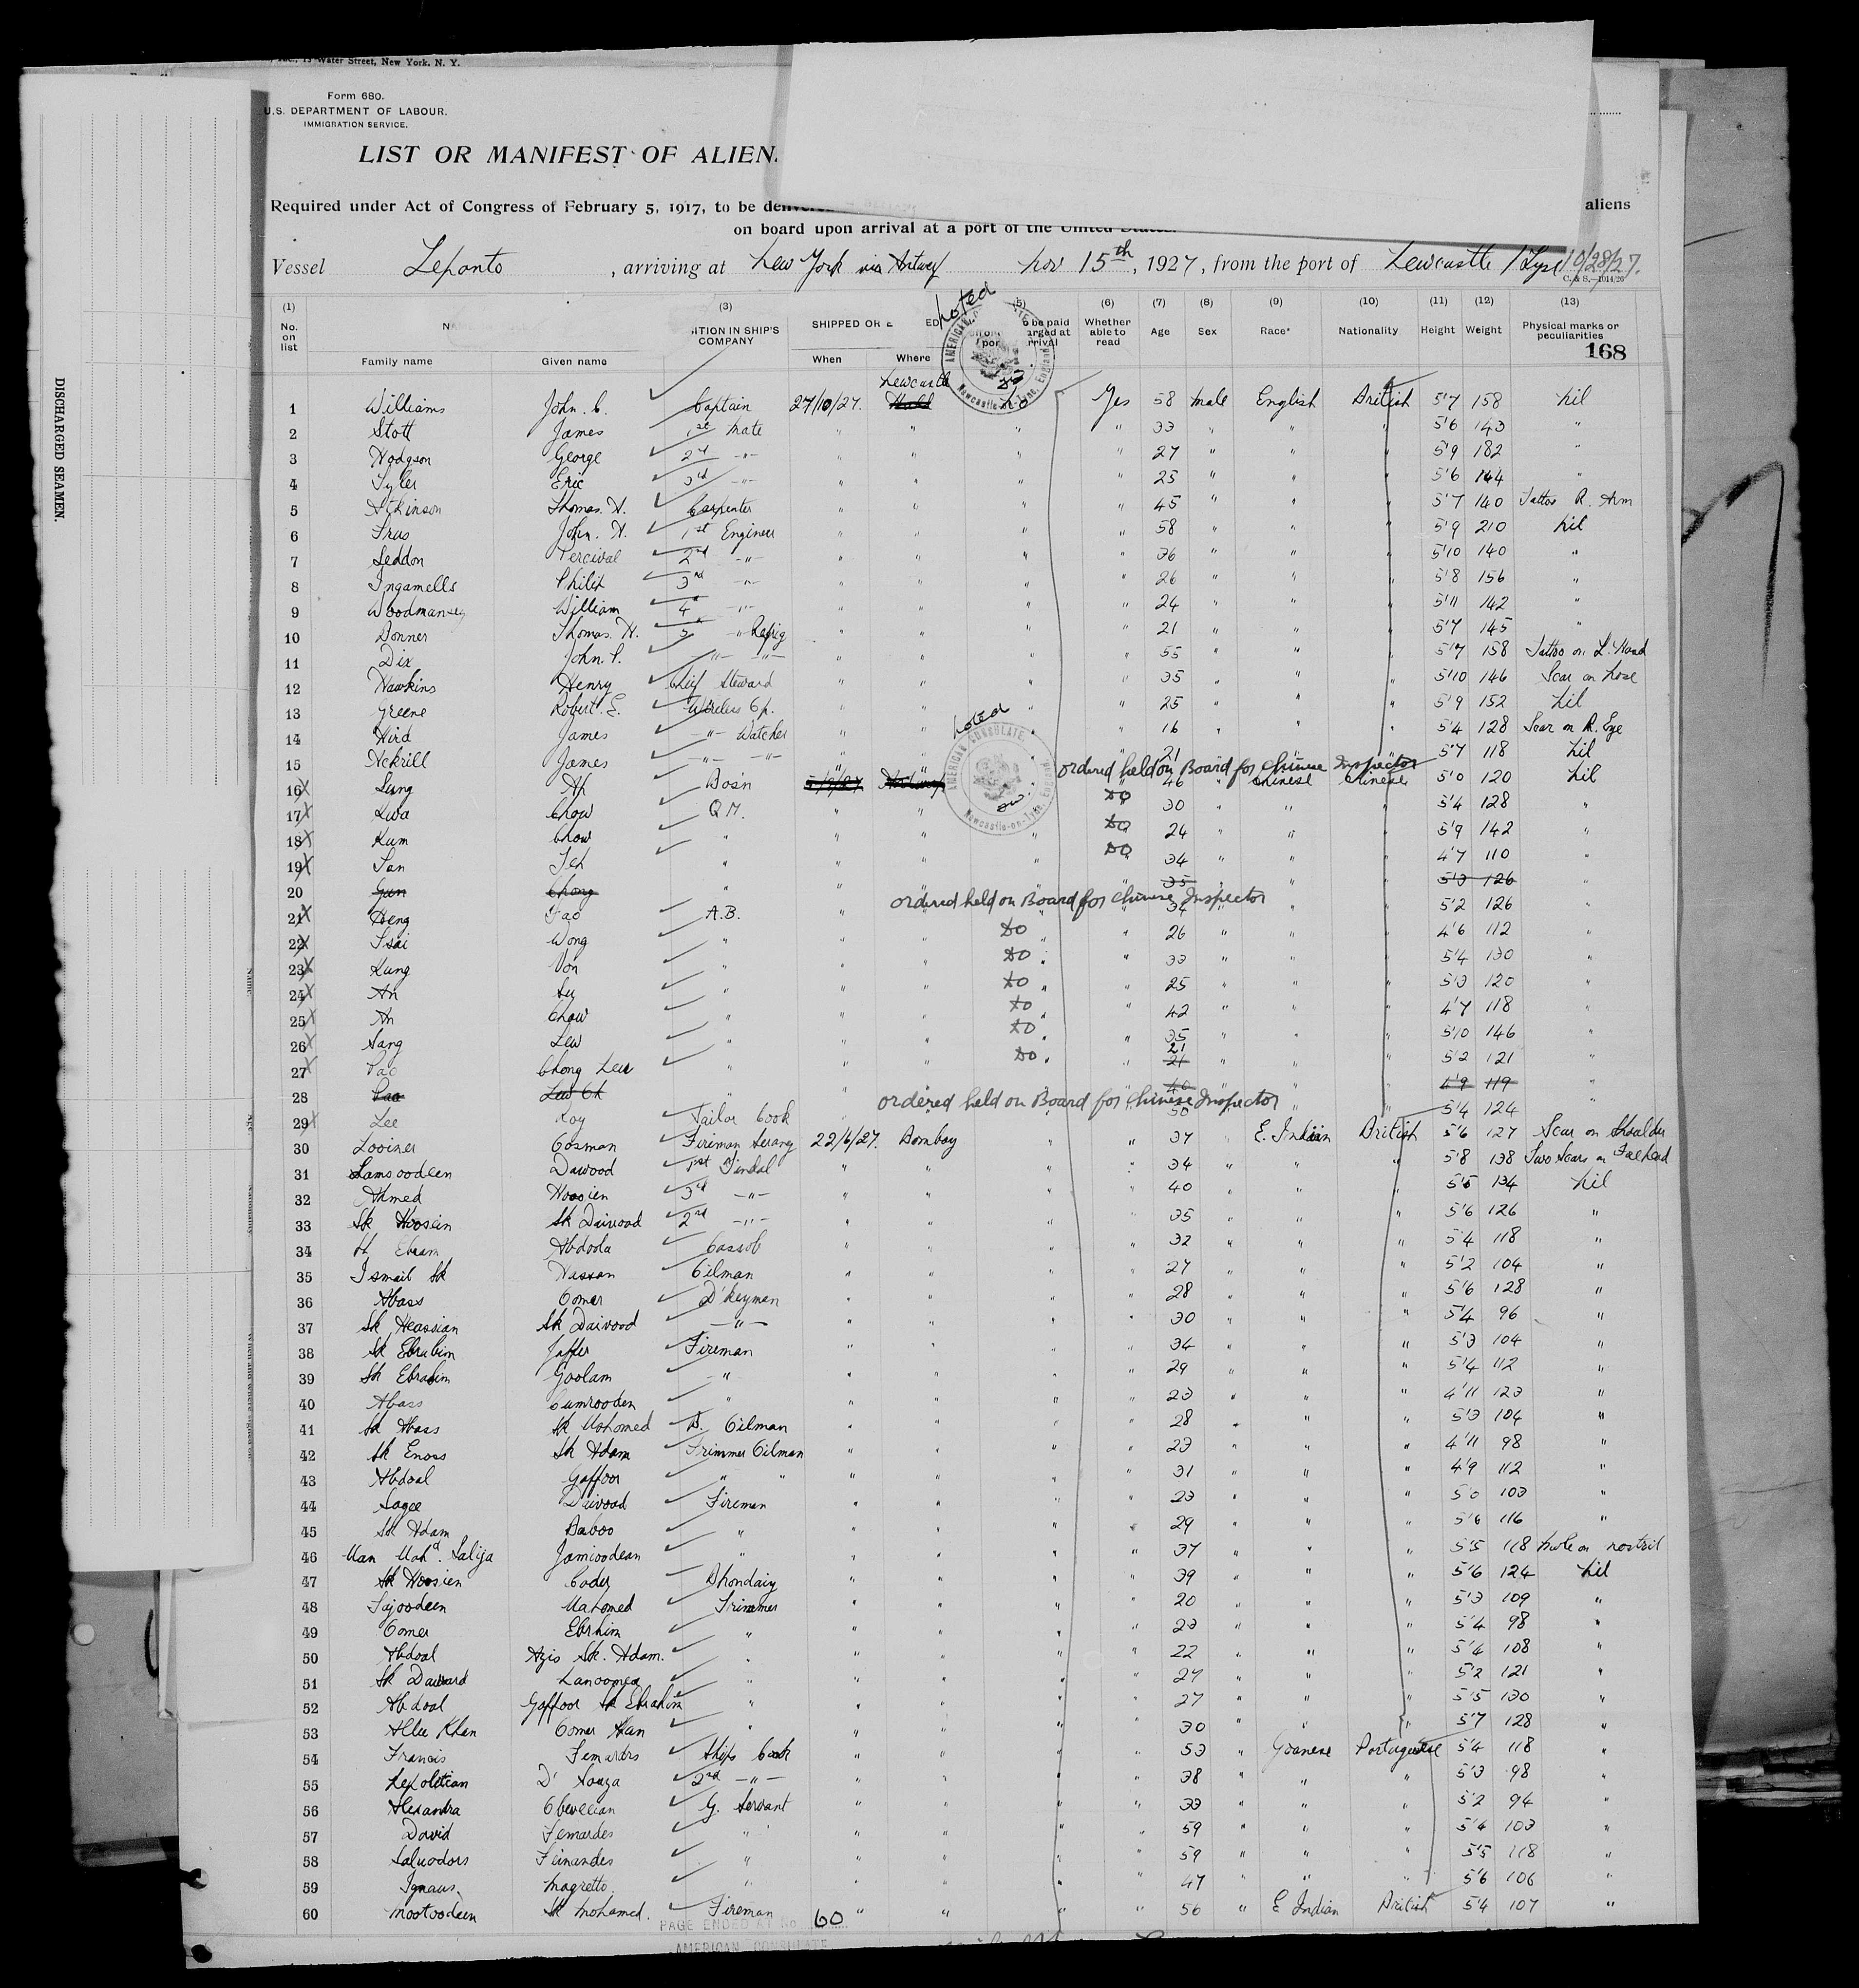 15 Water Street, New York, N. Y.
Form 680.
U.S. DEPARTMENT OF LABOUR.
IMMIGRATION SERVICE.
LIST OR MANIFEST OF ALIEN
Required under Act of Congress of February 5, 1917, to be delivered aliens
on board upon arrival at a port of the United States.
Vessel Leponto, arriving at New York via Antwerp Nov 15th, 1927, from the port of Newcastle / Tyne 10/28/27.
C. & S.—1014/26
(1) (3) (5) (6) (7) (8) (9) (10) (11) (12) (13)
No. on list Family name Given name ITION IN SHIP'S COMPANY SHIPPED OR ED When Where Whether able to read Age Sex Race* Nationality Height Weight Physical marks or peculiarities
168
noted
DISCHARGED SEAMEN.
Newcastle
1 Williams John. C. Captain 27/10/27. Hull No Yes 58 Male English British 5'7 158 Nil
2 Stott James 1st Mate " " " " 33 " " " 5'6 143 "
3 Hodgson George 2nd -"- " " " " 27 " " " 5'9 182 "
4 Tyler Eric 3rd -"- " " " " 25 " " " 5'6 144 "
5 Atkinson Thomas. H. Carpenter " " " " 45 " " " 5'7 140 Tattoo R. Arm
6 John. H. 1st Engineer " " " " 58 " " " 5'9 210 Nil
7 Seddon Percival 2nd -"- " " " " 36 " " " 5'10 140 "
8 Ingamells Philip 3rd -"- " " " " 26 " " " 5'8 156 "
9 Woodmansey William 4" -"- " " " " 24 " " " 5'11 142 "
10 Donner Thomas. H. 5 " Refrig " " " " 21 " " " 5'7 145 "
11 Dix John. P. -"- -"- " " " " 55 " " " 5'7 158 Tattoo on L. Hand
12 Hawkins Henry Chief Steward " " " " 35 " " " 5'10 146 Scar on Nose
13 Greene Robert. E. Wireless Op. " " " " 25 " " " 5'9 152 Nil
14 Hird James -"- Watcher " " " " 16 " " " 5'4 128 Scar on R. Eye
noted
15 Ackrill James -"- -"- " " " " 21 " " " 5'7 118 Nil
ordered held on Board for Chinese Inspector
16 Lung Ah Bosn 46 " Chinese Chinese 5'0 120 Nil
17 Kwa Chow Q.M. " " do 30 " " " 5'4 128 "
18 Kum Chow " " " " do 24 " " " 5'9 142 "
19 San Teh " " " " do 34 " " " 4'7 110 "
20 Gun Chong " " " " " 35 " " " 5'3 126 "
ordered held on Board for Chinese Inspector
21 Heng Fao A.B. " 34 " 5'2 126 "
22 Tsai Wong " " " do " 26 " " " 4'6 112 "
23 Kung Von " " " do " 33 " " " 5'4 130 "
24 Ah Sy " " " do " 25 " " " 5'3 120 "
25 Ah Chow " " " do " 42 " " " 4'7 118 "
26 Sang Lew " " " do " 35 " " " 5'10 146 "
27 Chong Lew " " " do " 21 21 " " " 5'2 121 "
28 Lew Ch " " 40 " " 4'9 119 "
ordered held on Board for Chinese Inspector
29 Lee Koy Tailor Cook 50 " " 5'4 124 "
30 Looiner Oosman Fireman Serang 22/6/27. Bombay " " 37 " E. Indian British 5'6 127 Scar on Shoulder
31 Samsoodeen Dawood 1st Tindal " " " " 34 " " " 5'8 138 Two Scars on Forehead
32 Ahmed Hoosien 3rd -"- " " " " 40 " " " 5'5 134 Nil
33 Sk Hoosein Sk Dawood 2nd -"- " " " " 35 " " " 5'6 126 "
34 Ebram Abdoola Cassob " " " " 32 " " " 5'4 118 "
35 Ismail Sk Hassan Oilman " " " " 27 " " " 5'2 104 "
36 Abass Oomer D'keyman " " " " 28 " " " 5'6 128 "
37 Sk Heassian Sk Daiwood -"- " " " " 30 " " " 5'4 96 "
38 Sk Ebrahim Jaffer Fireman " " " " 34 " " " 5'3 104 "
39 Sk Ebrahim Goolam -" " " " " 29 " " " 5'4 112 "
40 Abass Cumrooden " " " " " 23 " " " 4'11 123 "
41 Sk Abass Sk Mahomed D. Oilman " " " " 28 " " " 5'3 104 "
42 Sk Enoss Sk Adam Trimmer Oilman " " " " 23 " " " 4'11 98 "
43 Abdoal Gaffoor " " " " " " 31 " " " 4'9 112 "
44 Sagee Daiwood Fireman " " " " 23 " " " 5'0 103 "
45 Sk Adam Baboo " " " " " 29 " " " 5'6 116 "
46 Man Mahd. Saliya Jamioodean " " " " " 37 " " " 5'5 118 hole on nostril
47 Sk Hoosien Cader Bhondary " " " " 39 " " " 5'6 124 Nil
48 Tajoodeen Mahomed Trimmer " " " " 20 " " " 5'3 109 "
49 Oomer Ebrhim " " " " " 23 " " " 5'4 98 "
50 Abdoal Azis Sk. Adam. " " " " " 22 " " " 5'4 108 "
51 Sk Dawood " " " " " 27 " " " 5'2 121 "
52 Abdoal Gaffoor Sk Ebrahim " " " " " 27 " " " 5'5 130 "
53 Allee Khan Oomer Han " " " " " 30 " " " 5'7 128 "
54 Francis Fernandes Ships Cook " " " " 53 " Goanese Portuguese 5'4 118 "
55 Nepolitian D' Souza 2nd -"- " " " " 38 " " " 5'3 98 "
56 Alexandra G. Servant " " " " 33 " " " 5'2 94 "
57 David Fernardes " " " " " 59 " " " 5'4 103 "
58 Saluodors Fernandes " " " " " 59 " " " 5'5 118 "
59 Ignaus Magretto " " " " " 47 " " " 5'6 106 "
60 Mootoodeen Sk Mohamed. Fireman " " " " 56 " E Indian British 5'4 107 "
PAGE ENDED AT No. 60
AMERICAN CONSULATE